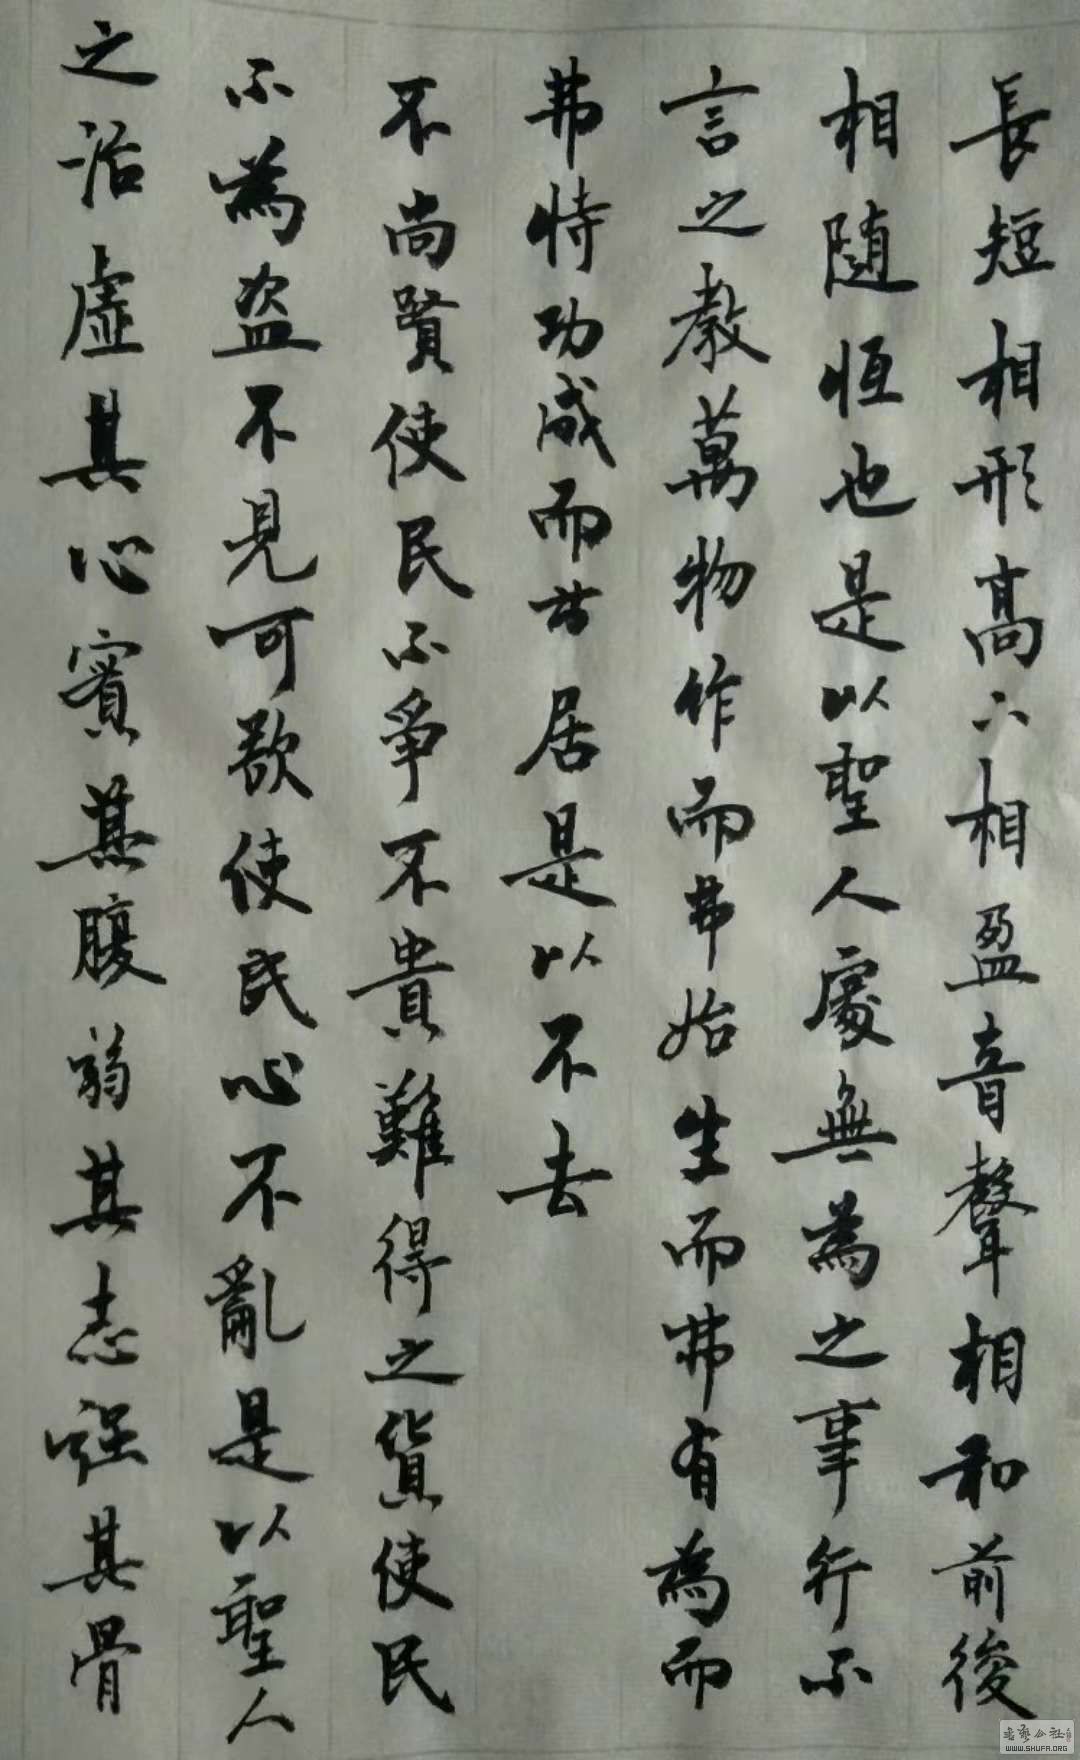 長短相形高下相盈音聲相和前後
相随恒也是以聖人處無為之事行不
言之教萬物作而弗始生而弗有為而
弗恃功成而弗居是以不去
不尚賢使民不爭不貴難得之貨使民
不為盗不見可欲使民心不亂是以聖人
之治虛其心實其腹弱其志强其骨
書藝公社
WWW.SHUFA.ORG